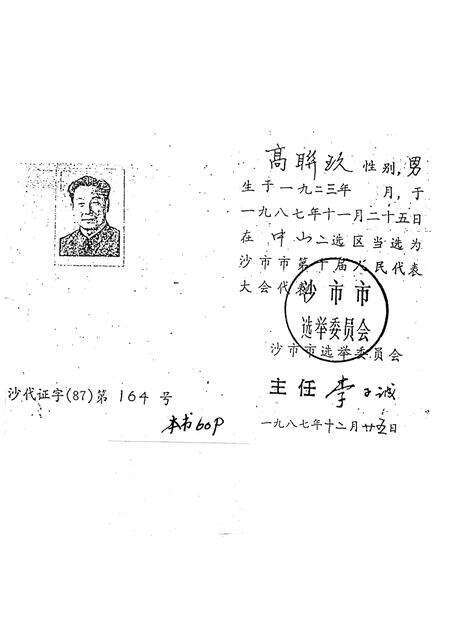 高聯玖 性别,男
生于一九二三年 月,于
一九八七年十一月二十五日
在中山二选区当选为
沙市市第十届人民代表
大会代表
沙市市
选举委员会
沙市市选举委员会
主任 李子诚
一九八七年十二月廿五日
沙代证字(87)第164号
本书60P